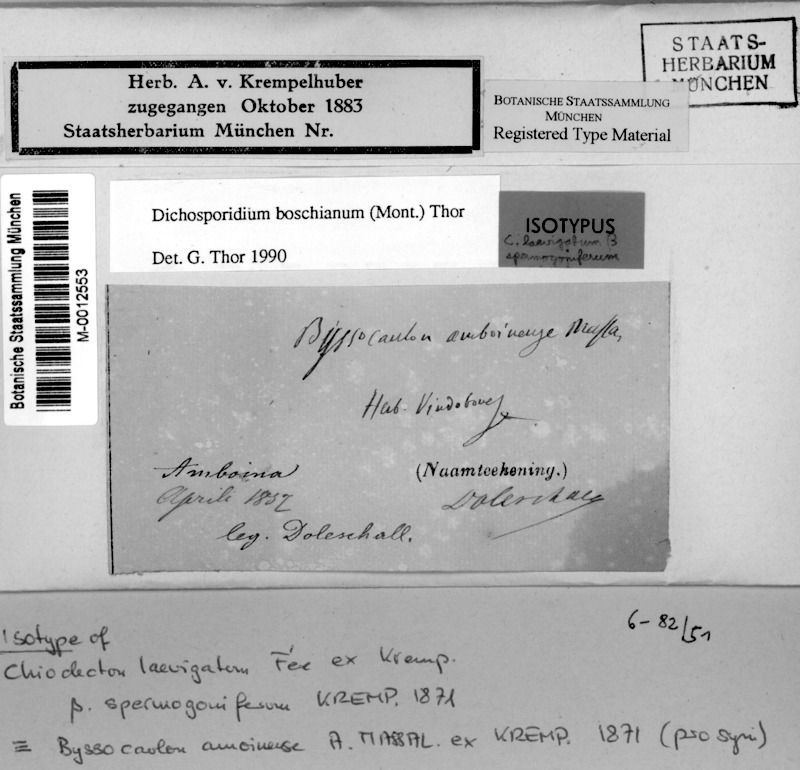 STAATS-
HERBARIUM
MÜNCHEN
Herb. A. v. Krempelhuber
zugegangen Oktober 1883
Staatsherbarium München Nr.
BOTANISCHE STAATSSAMMLUNG
MÜNCHEN
Registered Type Material
Botanische Staatssammlung München
M-0012553
Dichosporidium boschianum (Mont.) Thor
Det. G. Thor 1990
ISOTYPUS
C. laevigatum β
spermogoniferum
Byssocaulon amboinense Massa,
Herb. Vindobone
Amboina
Aprili 1857
(Naamteekening.)
Doleschall
leg. Doleschall.
6-82/51
Isotype of
Chiodecton laevigatum Fée ex Kremp.
β. spermogoniferum KREMP. 1871
≡ Byssocaulon amoinense A. MASSAL. ex KREMP. 1871 (pro syn.)